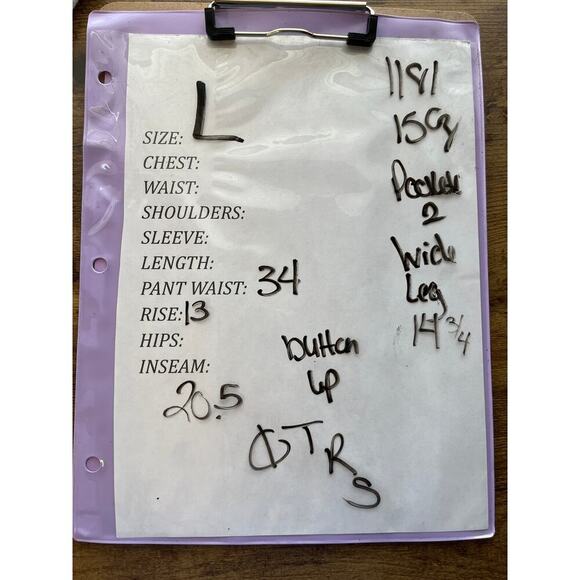 SIZE: L
CHEST:
WAIST:
SHOULDERS:
SLEEVE:
LENGTH:
PANT WAIST: 34
RISE: 13
HIPS:
INSEAM:
20.5
button
up
1181
15oz
2
Wide
Leg
14 3/4